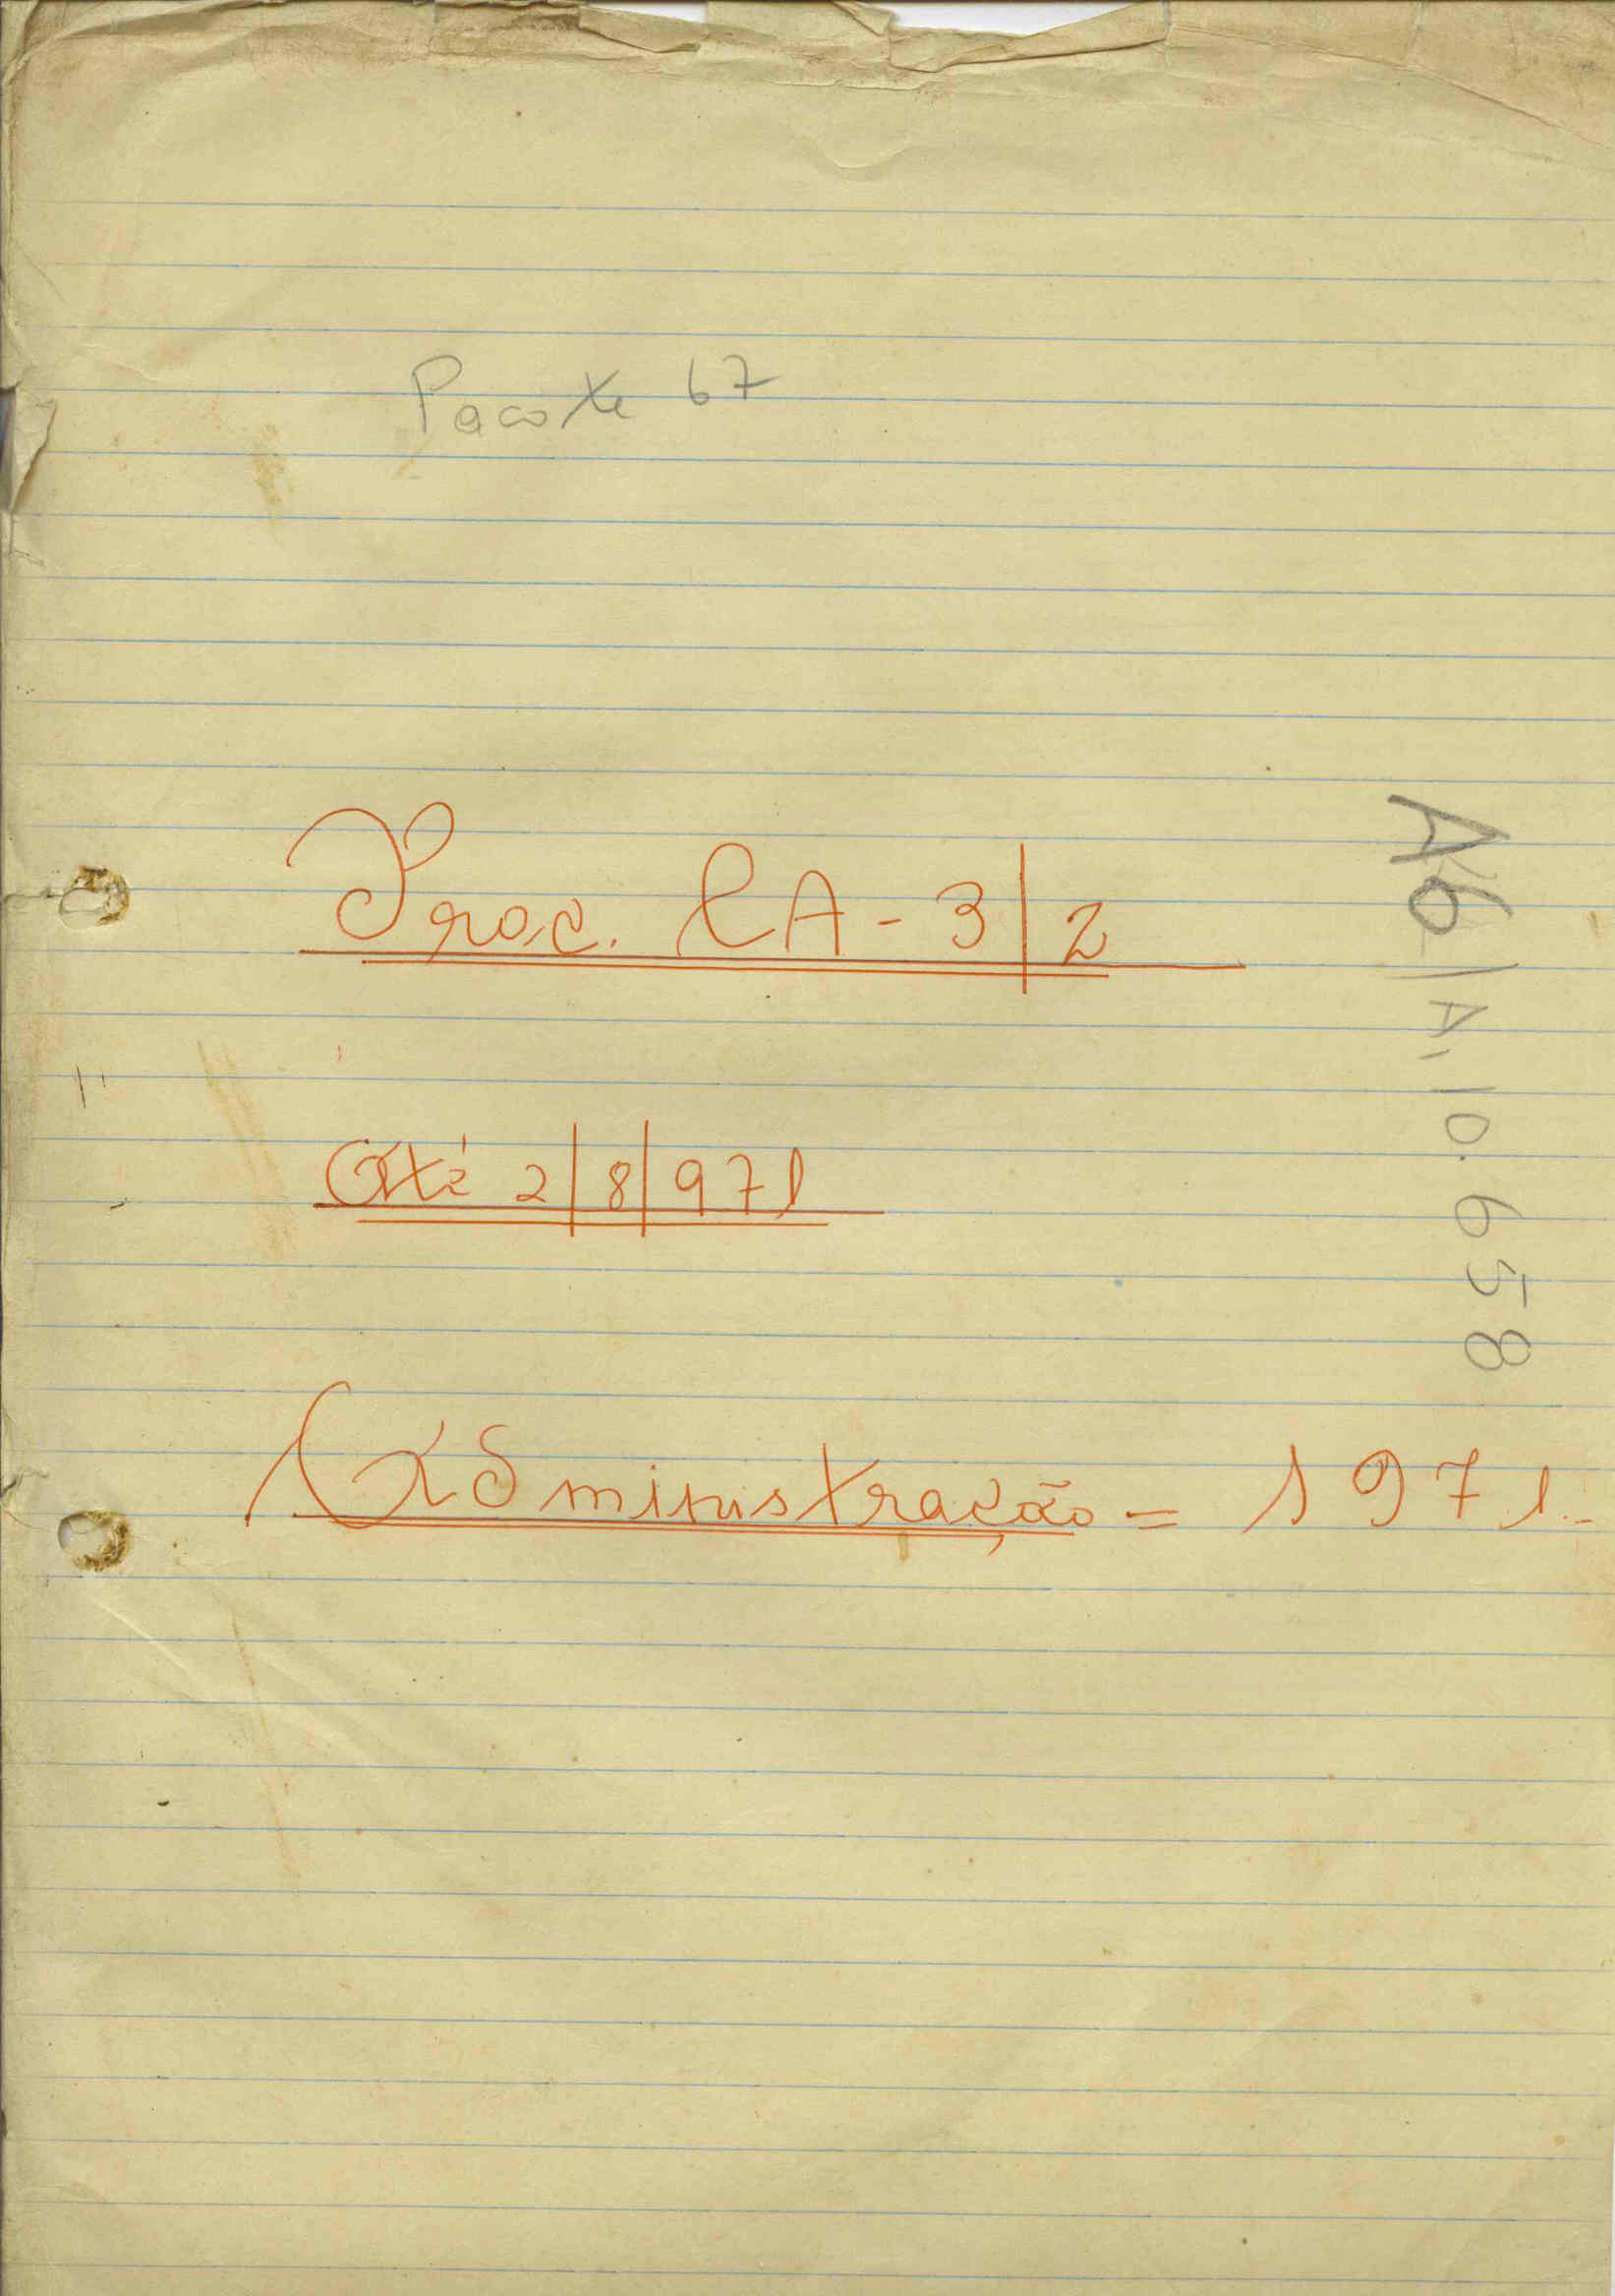 Pacote 67
Proc. CA-3/2
Até 2/8/971
Administração = 1971.-
A6/A, 10.658